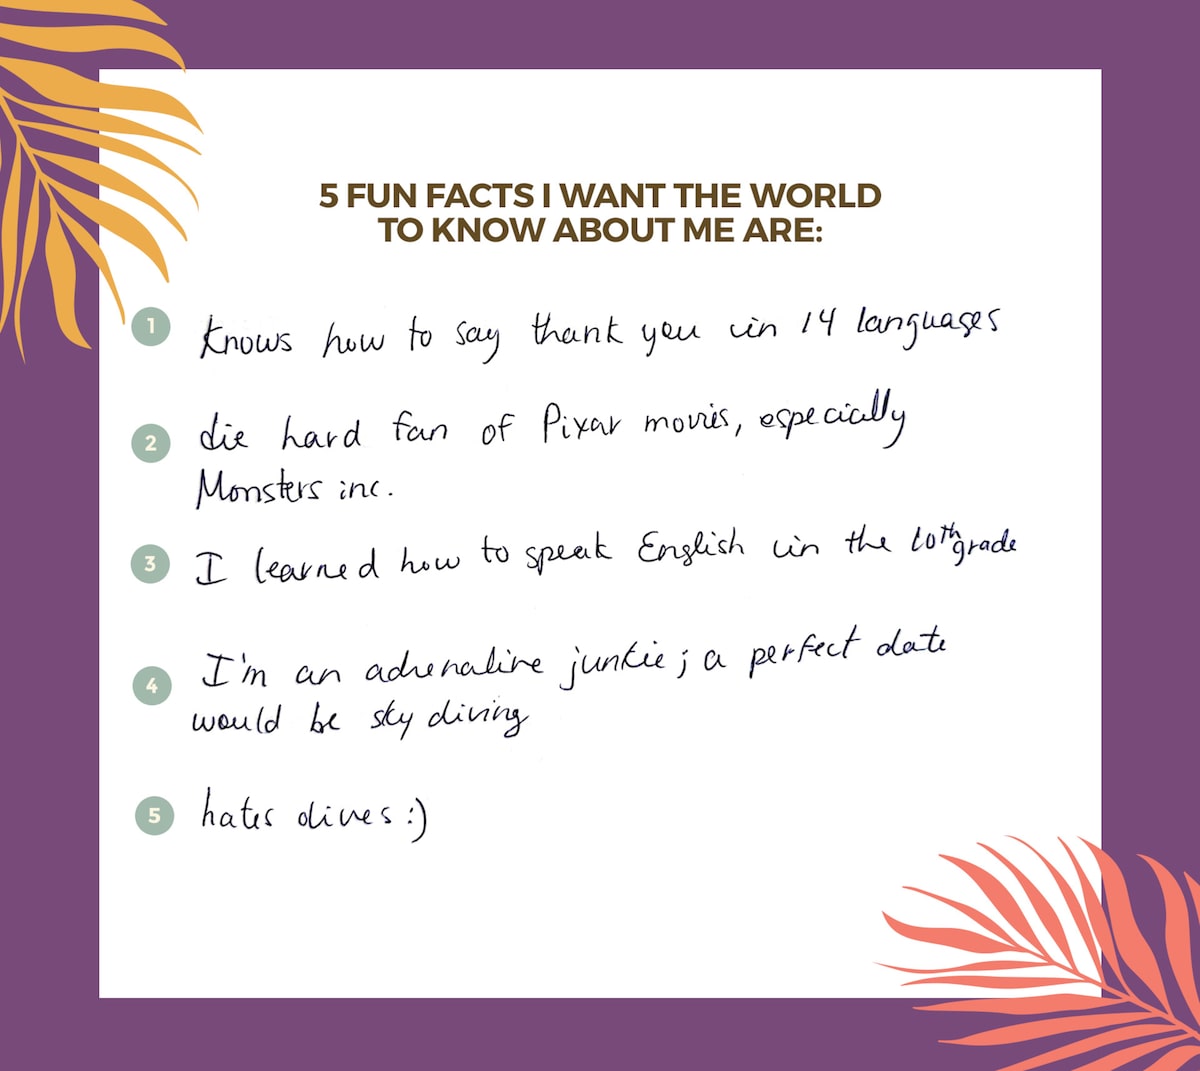 5 FUN FACTS I WANT THE WORLD
TO KNOW ABOUT ME ARE:
1 Knows how to say thank you in 14 languages
2 die hard fan of Pixar movies, especially
Monsters inc.
3 I learned how to speak English in the 10th grade
4 I'm an adrenaline junkie; a perfect date
would be sky diving
5 hates olives :)